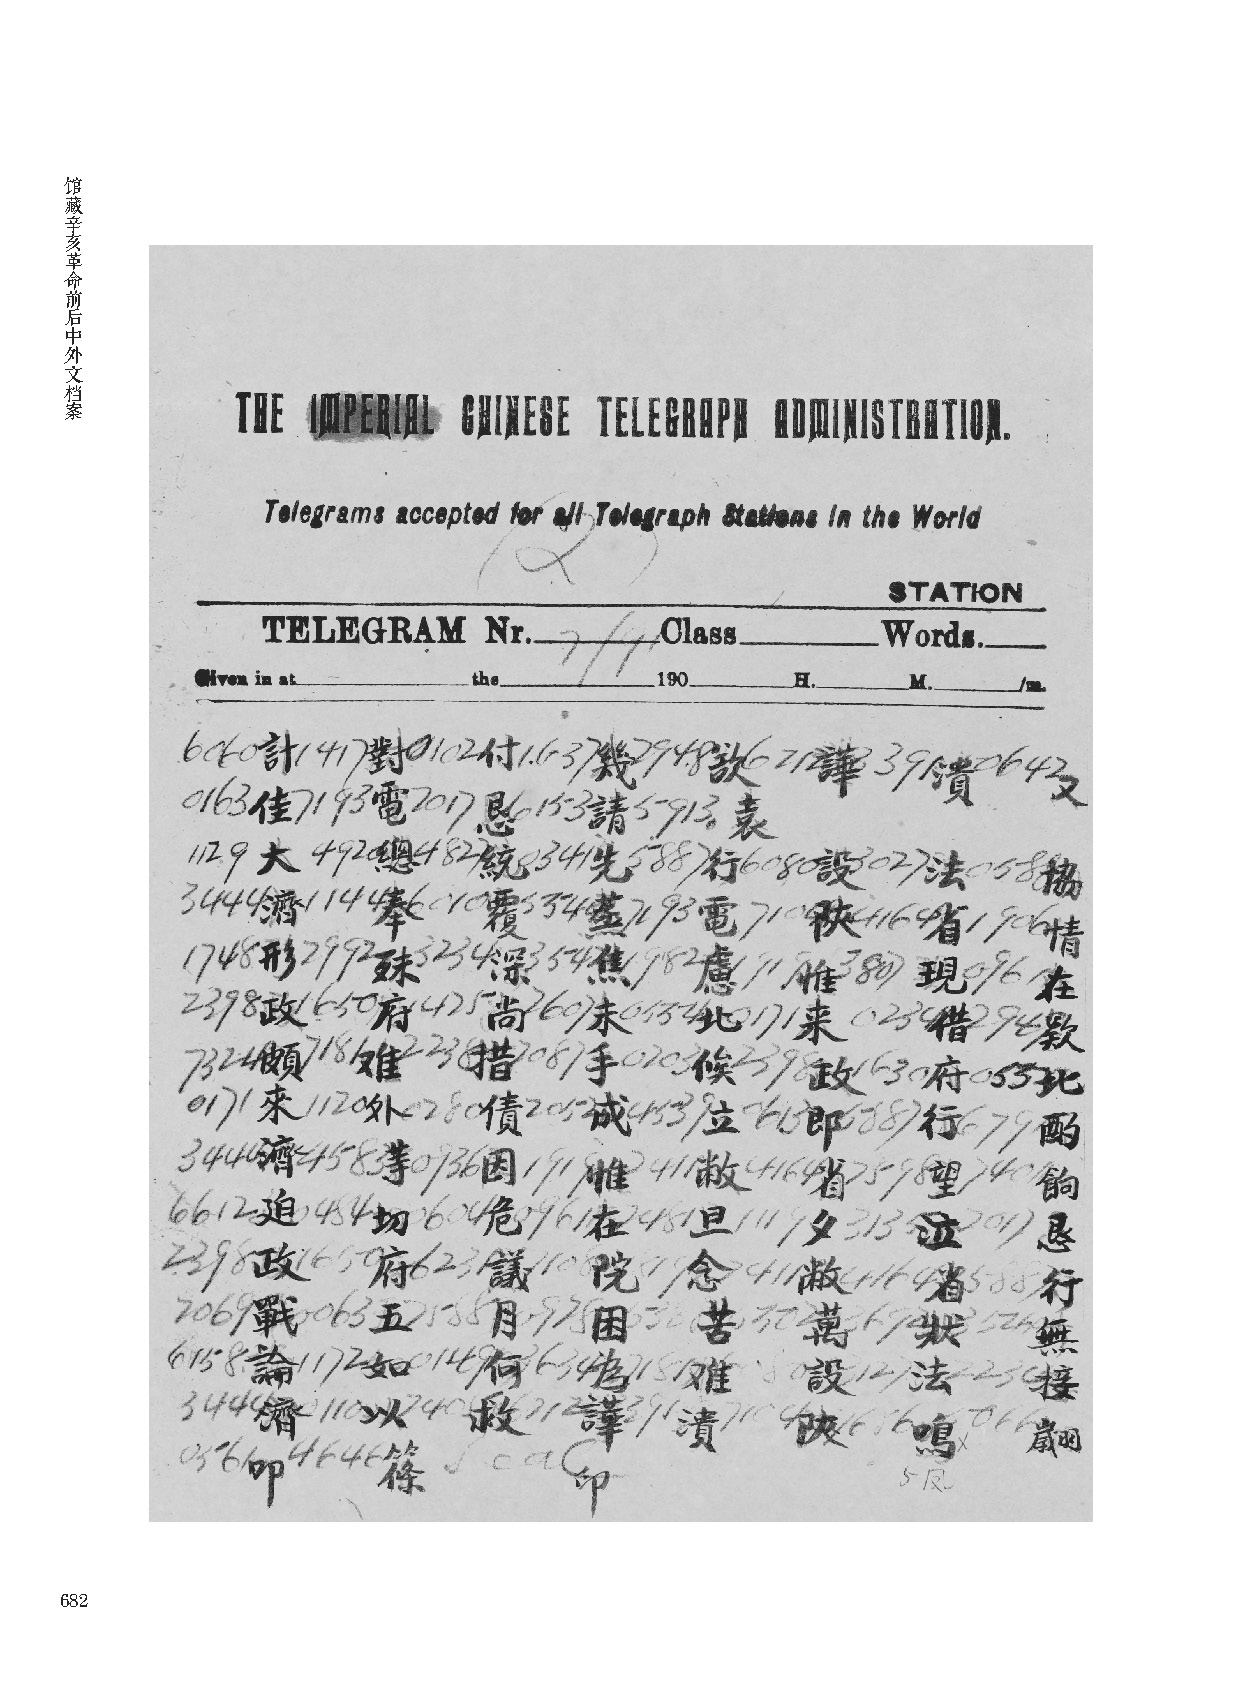 馆藏辛亥革命前后中外文档案
THE IMPERIAL CHINESE TELEGRAPH ADMINISTRATION.
Telegrams accepted for all Telegraph Stations in the World
(2)
STATION
TELEGRAM Nr. Class Words.
Given in at the 190 H. M. /m.
6060計1417對0102付1637幾2948欵6212譁3391潰0642又
0163佳7193電2017恳6153請5913袁
1129大4920總4827統0341先5887行6080設3027法0588協
3444濟1144奉6010覆5534蒸7193電7104陝4164省1906情
1748形2992殊3234深3542焦1982慮1919惟3807現0961在
2398政1650府1425尚2607未0554北0171来0234借2949欵
7324頗7181难2238措2087手0203候2398政1650府0554北
0171來1120外0280債2052成4539立0613即5887行6794酌
3444濟4583等0936因1919惟2411敝4164省2598望7401餉
6612迫0434切0604危0961在2481旦1119夕3135泣2017恳
2398政1650府6231議1108院 念2411敝4164省5887行
2069戰0063五2588月 困 苦 萬 狀 無
6158論1172如0149何3634為7181难6080設 法 接
3444濟0110以2405救6212譁3391潰7104陝 鳴 歲翮
叩4646篠 印
682